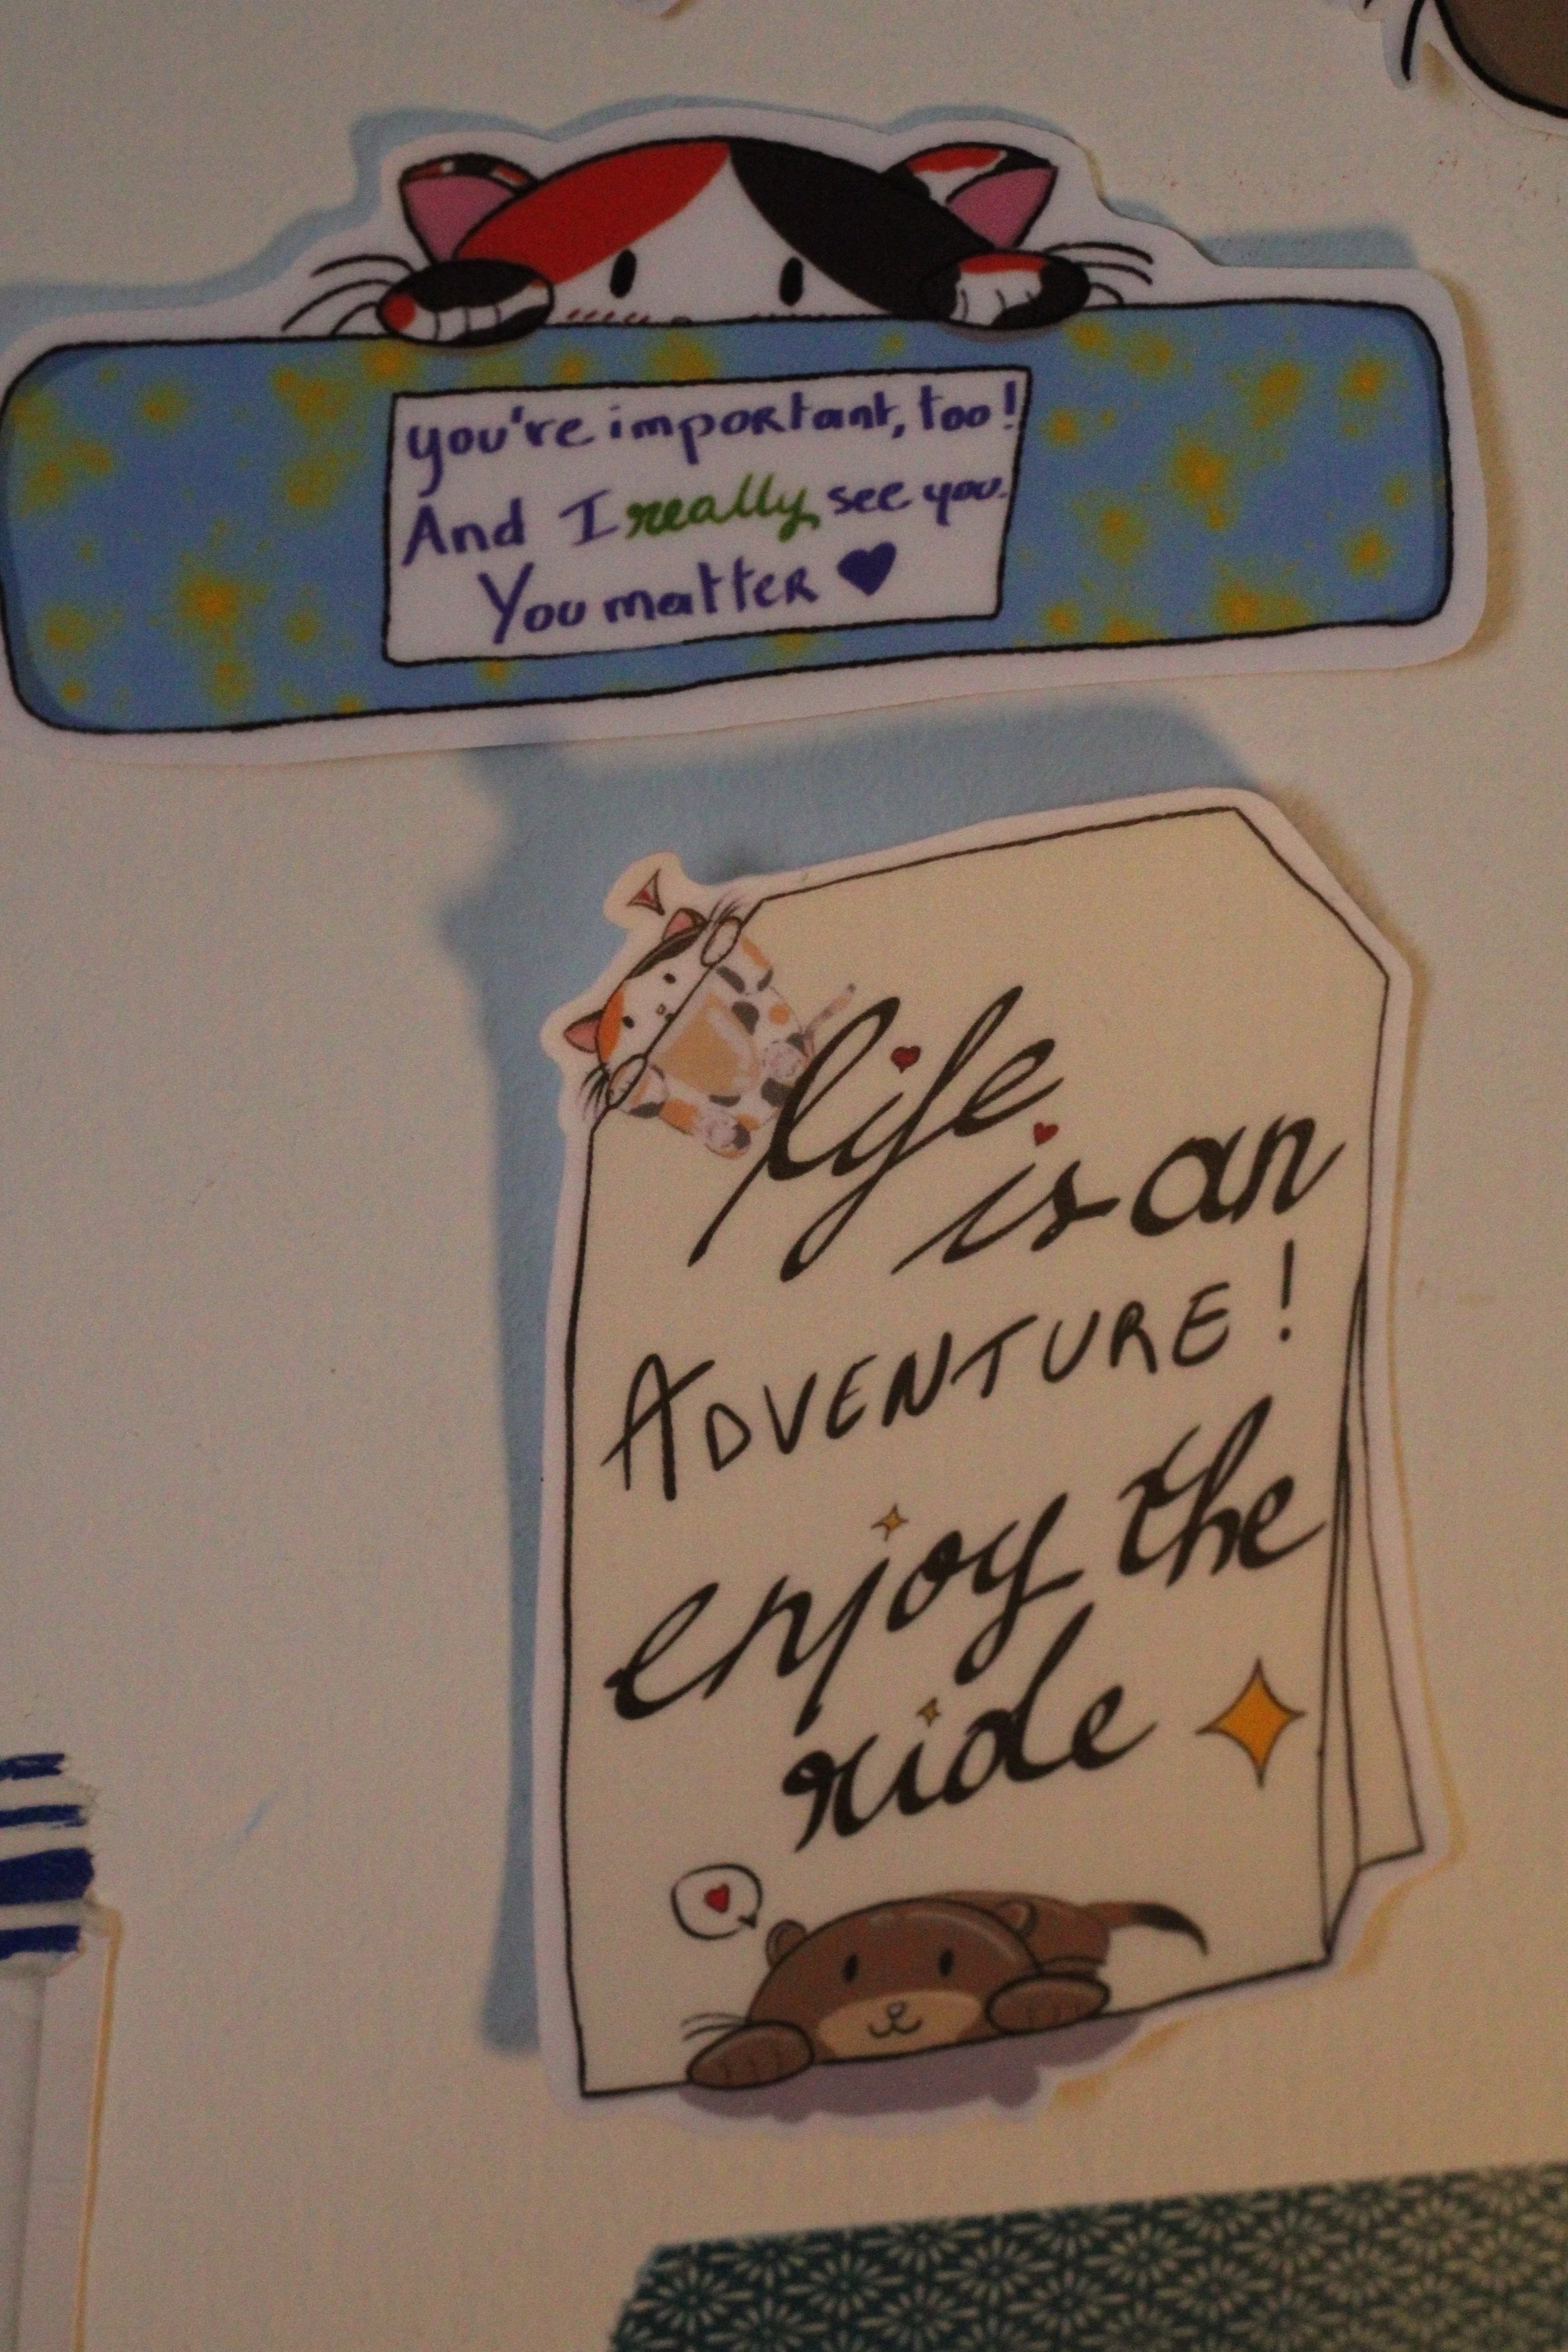 you're important, too!
And I really see you.
You matter ♥
life
is an
ADVENTURE!
enjoy the
ride